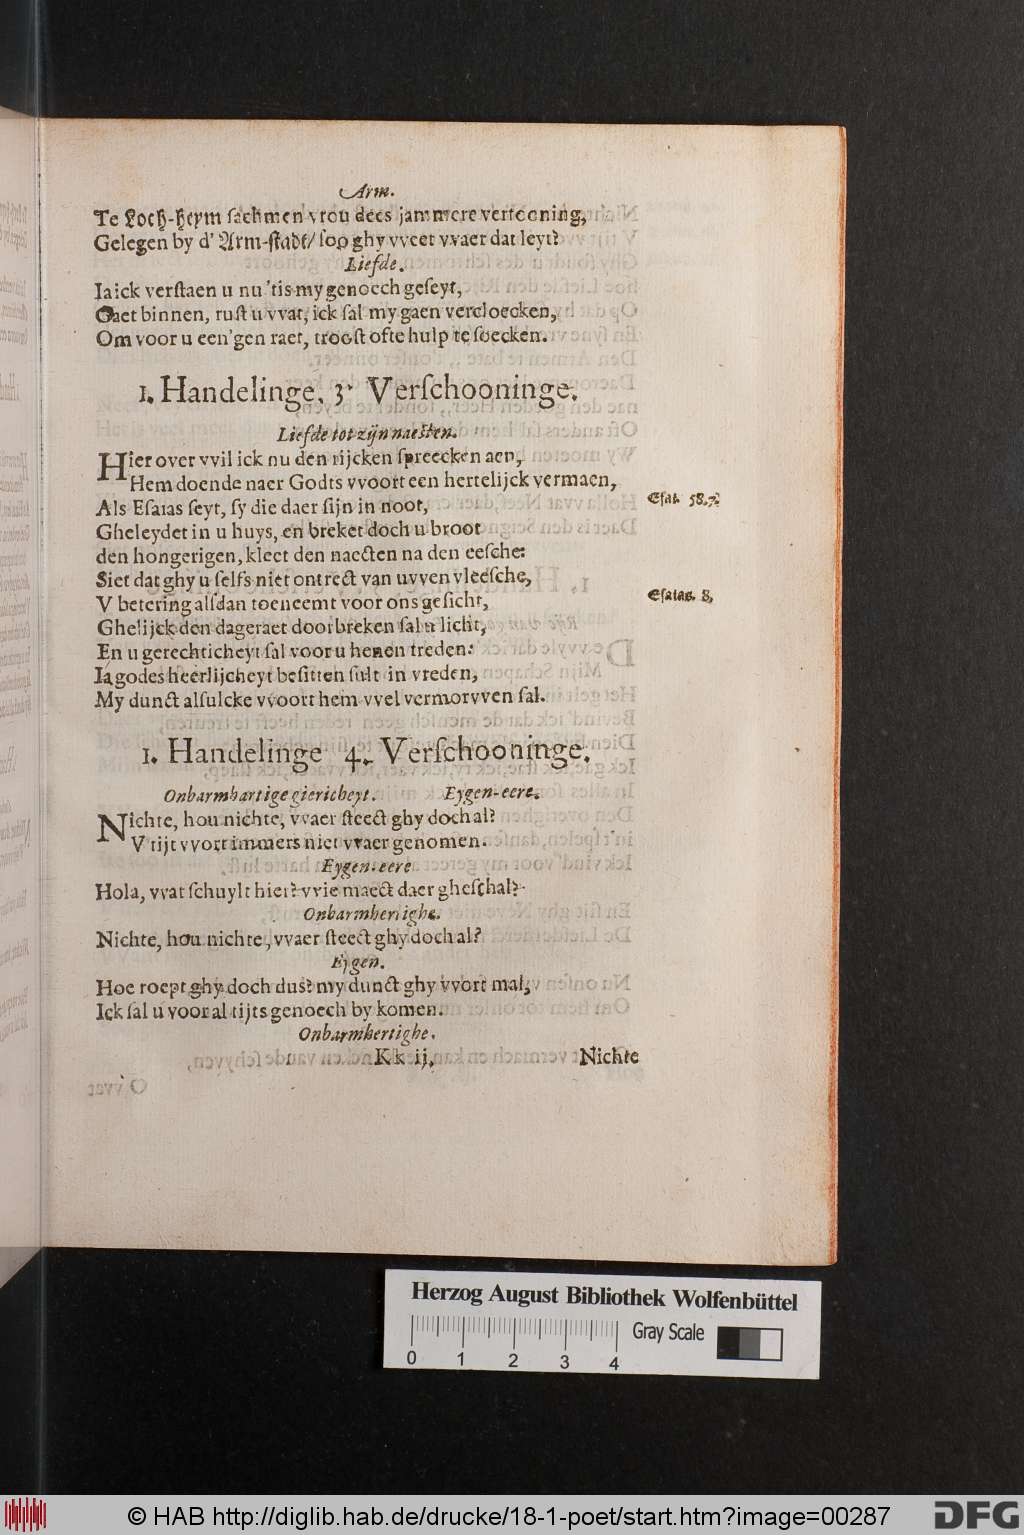 Arm.
Te Loch-heym sachmen vrou dees jammere vertooning,
Gelegen by d' Arm-stadt/ soo ghy vveet vvaer dat leyt?
Liefde.
Ia ick verstaen u nu 'tis my genoech geseyt,
Gaet binnen, rust u vvat, ick sal my gaen vercloecken,
Om voor u een'gen raet, troost ofte hulp te soecken.
1. Handelinge. 3. Verschooninge.
Liefde tot zijn naesten.
Hier over vvil ick nu den rijcken spreecken aen,
Hem doende naer Godts vvoort een hertelijck vermaen,
Als Esaias seyt, sy die daer sijn in noot,
Esai. 58.7.
Gheleydet in u huys, en breket doch u broot
den hongerigen, kleet den naecten na den eesche:
Siet dat ghy u selfs niet ontrect van uvven vleesche,
V betering alsdan toeneemt voor ons gesicht,
Esaias. 8,
Ghelijck den dageraet doorbreken sal u licht,
En u gerechticheyt sal voor u henen treden:
Ia godes heerlijcheyt besitten sult in vreden,
My dunct alsulcke vvoort hem vvel vermorvven sal.
1. Handelinge 4. Verschooninge.
Onbarmhartige giericheyt. Eygen-eere.
Nichte, hou nichte, vvaer steect ghy doch al?
V tijt vvort immers niet vvaer genomen.
Eygen-eere
Hola, vvat schuylt hier? vvie maect daer gheschal?
Onbarmhertighe.
Nichte, hou nichte, vvaer steect ghy doch al?
Eygen.
Hoe roept ghy doch dus? my dunct ghy vvort mal,
Ick sal u vooral tijts genoech by komen.
Onbarmhertighe.
Kk ij,
Nichte
Herzog August Bibliothek Wolfenbüttel
Gray Scale
0 1 2 3 4
© HAB http://diglib.hab.de/drucke/18-1-poet/start.htm?image=00287
DFG